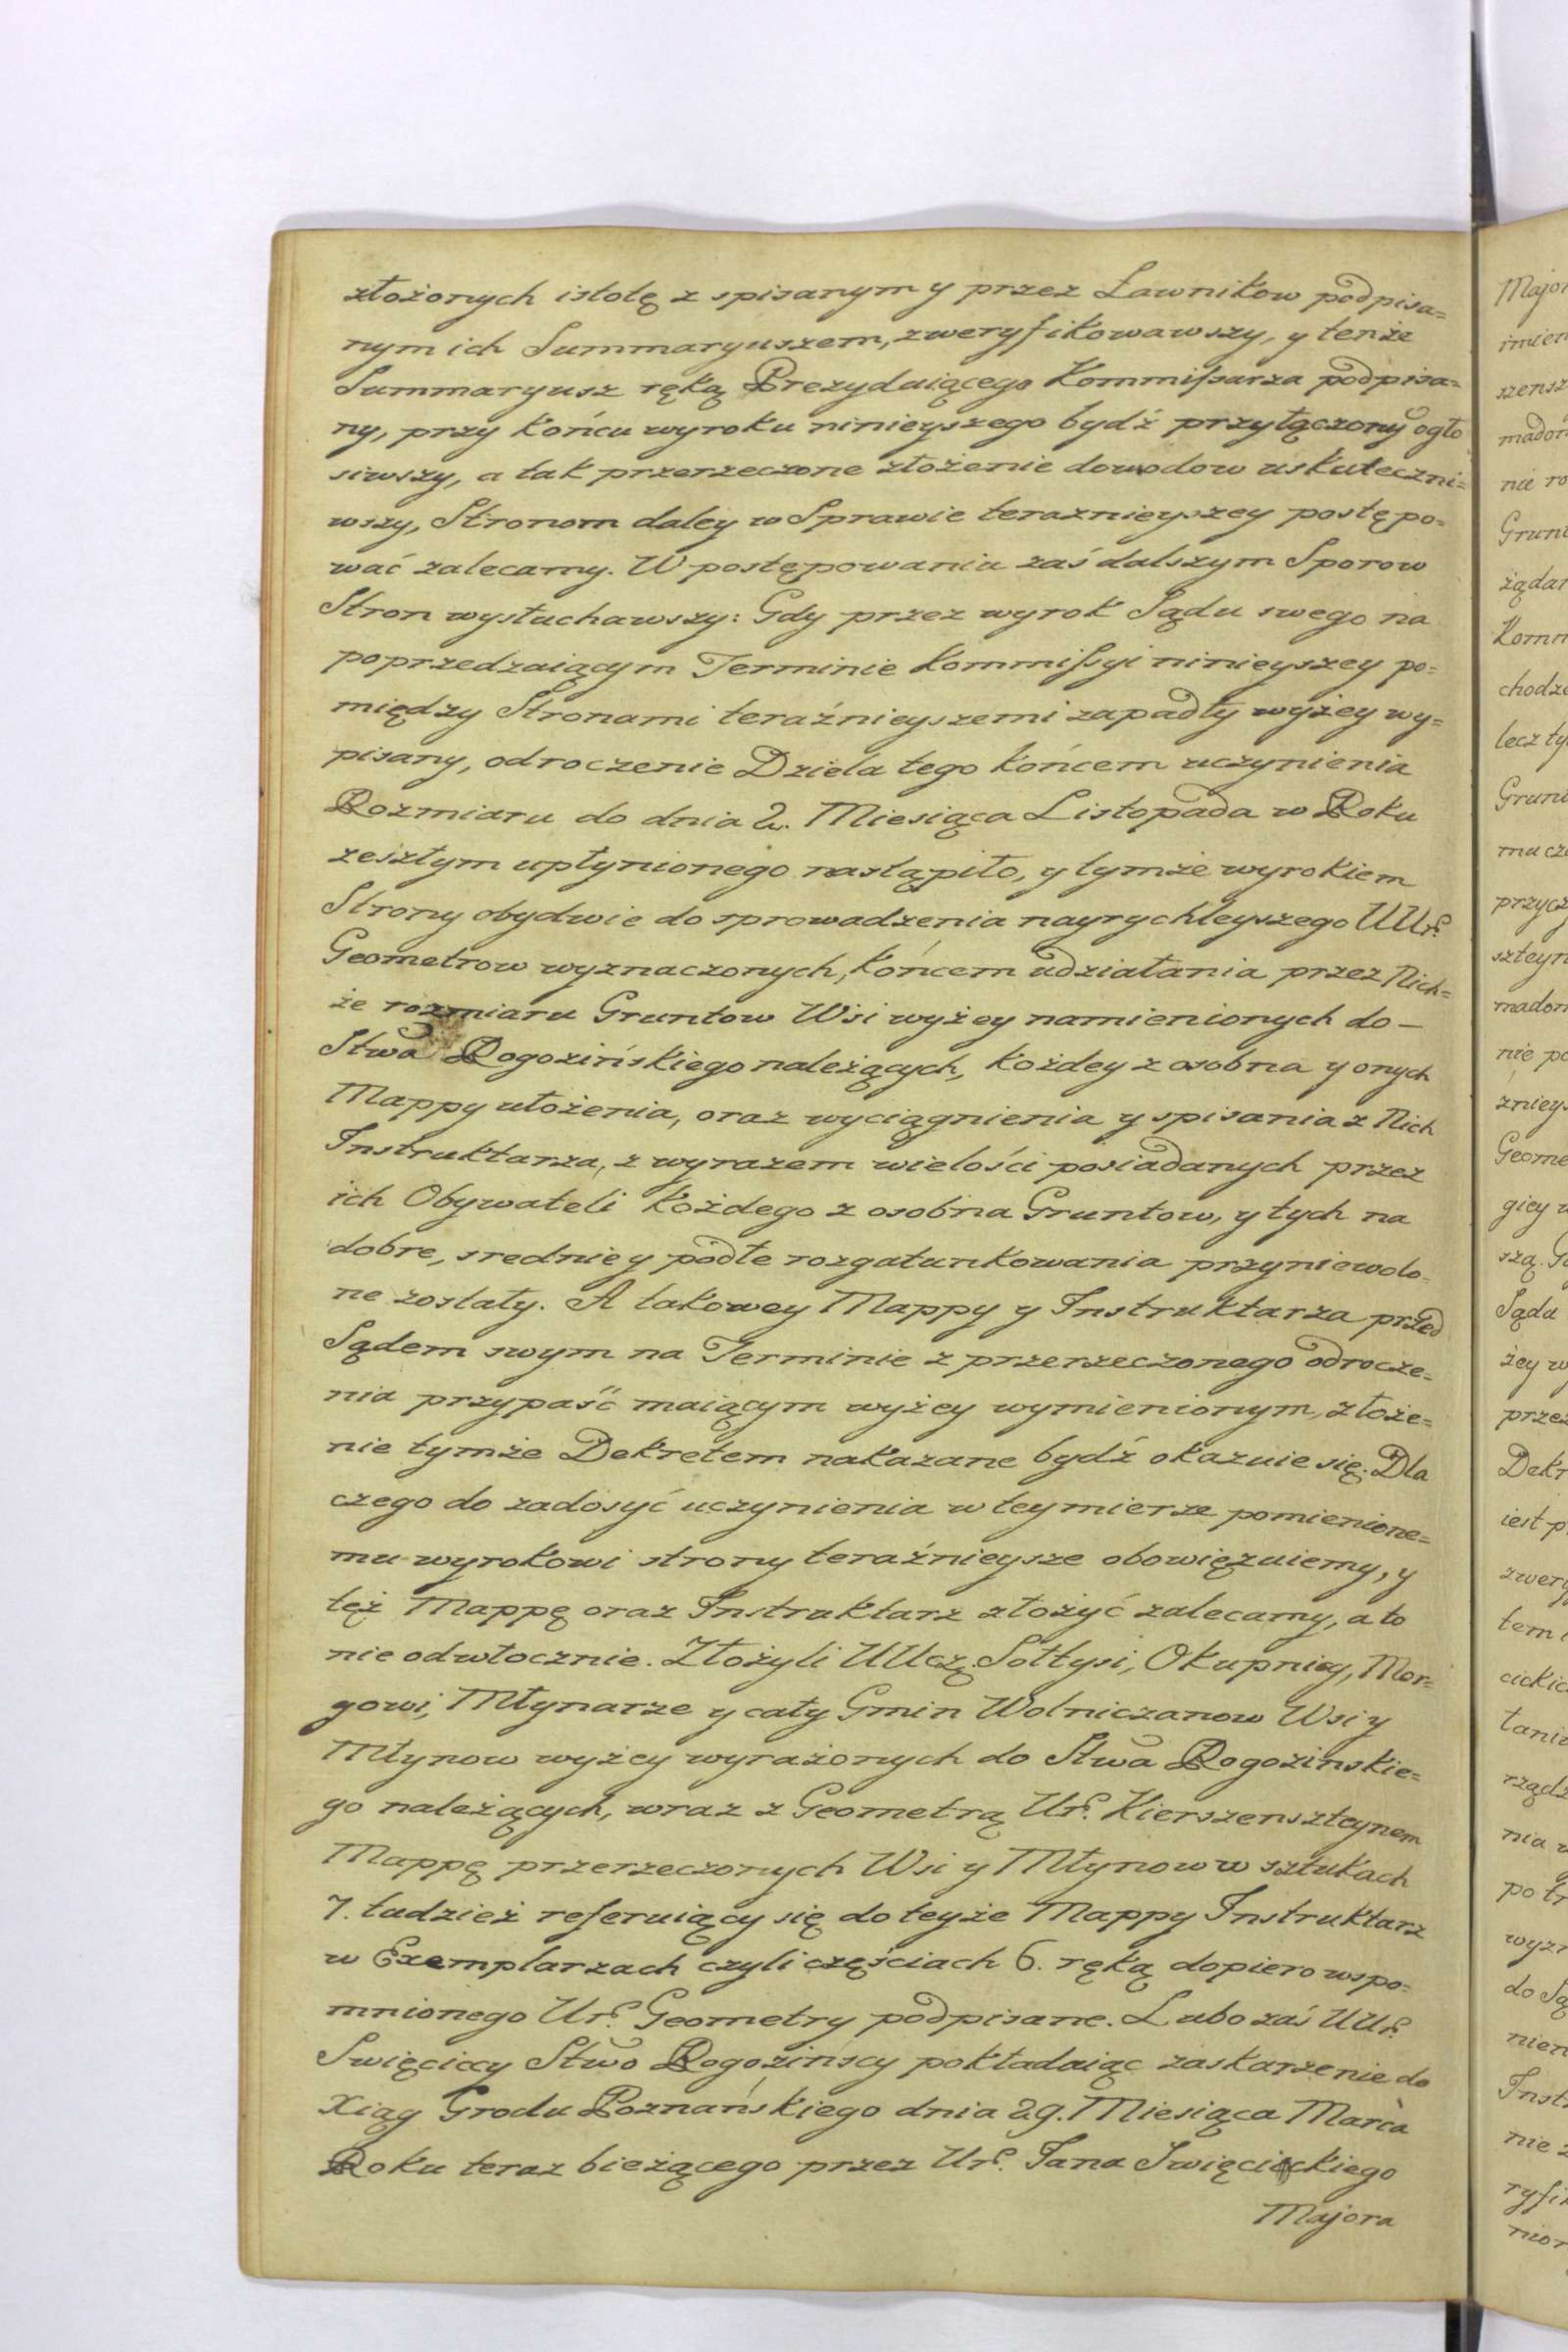 złożonych istotę z spisanym y przez Ławnikow podpisa=
nym ich Summaryuszem, zweryfikowawszy, y tenże
Summaryusz ręką Prezyduiącego Kommißarza podpisa=
ny, przy końcu wyroku ninieyszego bydź przyłączony ogło
siwszy, a tak przerzeczone złożenie dowodow uskuteczni=
wszy, Stronom daley w Sprawie teraznieyszey postępo=
wać zalecamy. W postępowaniu zaś dalszym Sporow
Stron wysłuchawszy: Gdy przez wyrok Sądu swego na
poprzedzaiącym Terminie Kommißyi ninieyszey po=
między Stronami teraźnieyszemi zapadły wyżey wy=
pisany, odroczenie Dzieła tego końcem uczynienia
Rozmiaru do dnia 2. Miesiąca Listopada w Roku
zeszłym upłynionego nastąpiło, y tymże wyrokiem
Strony obydwie do sprowadzenia nayrychleyszego UUr.
Geometrow wyznaczonych, końcem udziałania przez Nich=
że rozmiaru Gruntow Wsi wyżey namienionych do –
Stwa Rogozińskiego należących, każdey z osobna y onych
Mappy ułożenia, oraz wyciągnienia y spisania z Nich
Instruktarza, z wyrazem wielości posiadanych przez
ich Obywateli każdego z osobna Gruntow, y tych na
dobre, srednie y podłe rozgatunkowania przyniewolo=
ne zostały. A takowey Mappy y Instruktarza przed
Sądem swym na Terminie z przerzeczonego odrocze=
nia przypaść maiącym wyżey wymienionym, złoże=
nie tymże Dekretem nakazane bydź okazuie się. Dla
czego do zadosyć uczynienia w tey mierze pomienione=
mu wyrokowi strony teraźnieysze obowięzuiemy, y
też Mappę oraz Instruktarz złożyć zalecamy, a to
nie odwłocznie. Złożyli UUcz. Sołtysi, Okupnicy, Mor=
gowi, Młynarze y cały Gmin Wolniczanow Wsi y
Młynow wyżey wyrażonych do Stwa Rogozinskie=
go należących, wraz z Geometrą Ur. Kierszenszteynem
Mappę przerzeczonych Wsi y Młynow w sztukach
7. tudzież referuiący się do teyże Mappy Instruktarz
w Exemplarzach czyli częściach 6. ręką dopiero wspo=
mnionego Ur. Geometry podpisane. Lubo zaś UUr.
Swięciccy Stwo Rogozińscy pokładaiąc zaskarżenie do
Xiąg Grodu Poznańskiego dnia 29. Miesiąca Marca
Roku teraz bieżącego przez Ur. Jana Swięcickiego
Majora